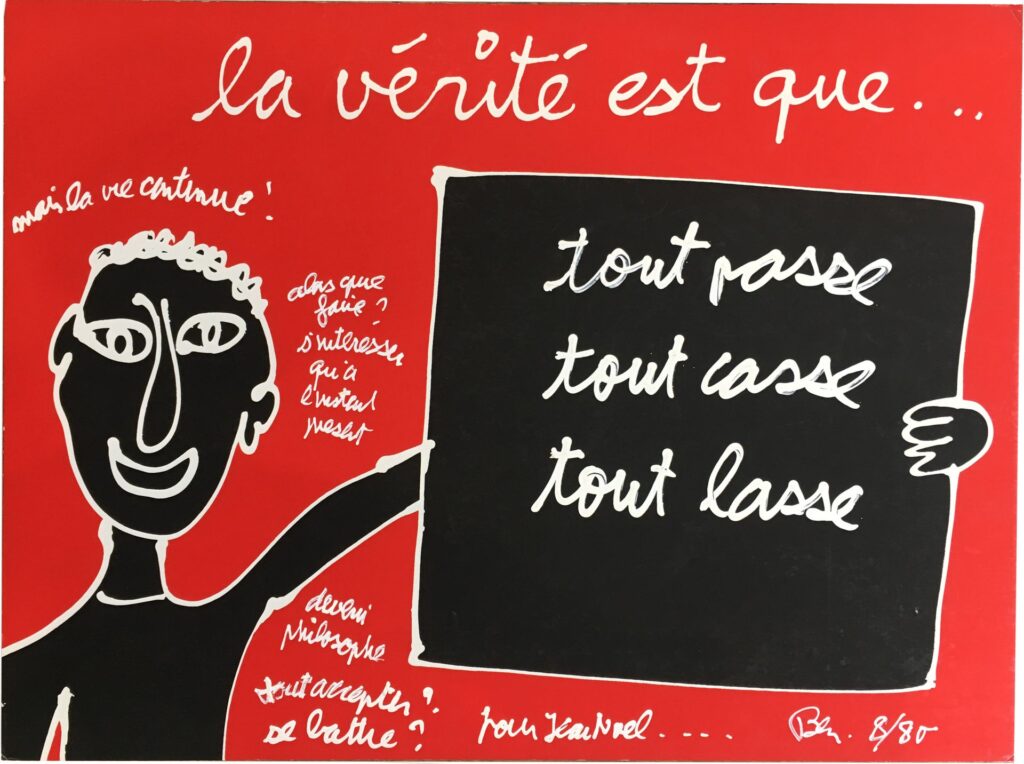 la vérité est que....
mais la vie continue !
tout passe
tout casse
tout lasse
alors que
faire ?
s'intéresser
qu'a
l'instant
present
devenir
philosophe
tout accepter ?
se battre ?
pour Jean Noel.....
Ben. 8/80